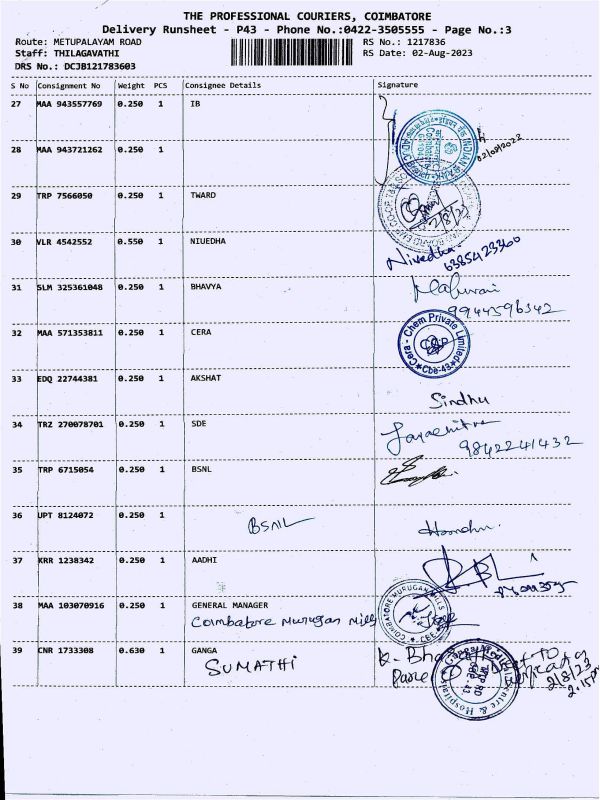 THE PROFESSIONAL COURIERS, COIMBATORE
Delivery Runsheet - P43 - Phone No.:0422-3505555 - Page No.:3
Route: METUPALAYAM ROAD RS No.: 1217836
Staff: THILAGAVATHI RS Date: 02-Aug-2023
DRS No.: DCJB121783603
S No Consignment No Weight PCS Consignee Details Signature
27 MAA 943557769 0.250 1 IB
02/08/2023
28 MAA 943721262 0.250 1
29 TRP 7566050 0.250 1 TWARD
2/8/23
30 VLR 4542552 0.550 1 NIUEDHA
Nivedha
6385423360
31 SLM 325361048 0.250 1 BHAVYA
9944596342
32 MAA 571353811 0.250 1 CERA
Cera-Chem Private Limited
Cbe-43
33 EDQ 22744381 0.250 1 AKSHAT
Sindhu
34 TRZ 270078701 0.250 1 SDE
Jayachitra
9842241432
35 TRP 6715054 0.250 1 BSNL
36 UPT 8124072 0.250 1 BSNL
37 KRR 1238342 0.250 1 AADHI
38 MAA 103070916 0.250 1 GENERAL MANAGER
Coimbatore Murugan Mills
COIMBATORE MURUGAN MILLS
39 CNR 1733308 0.630 1 GANGA
SUMATHI
2/8/23
2.15pm